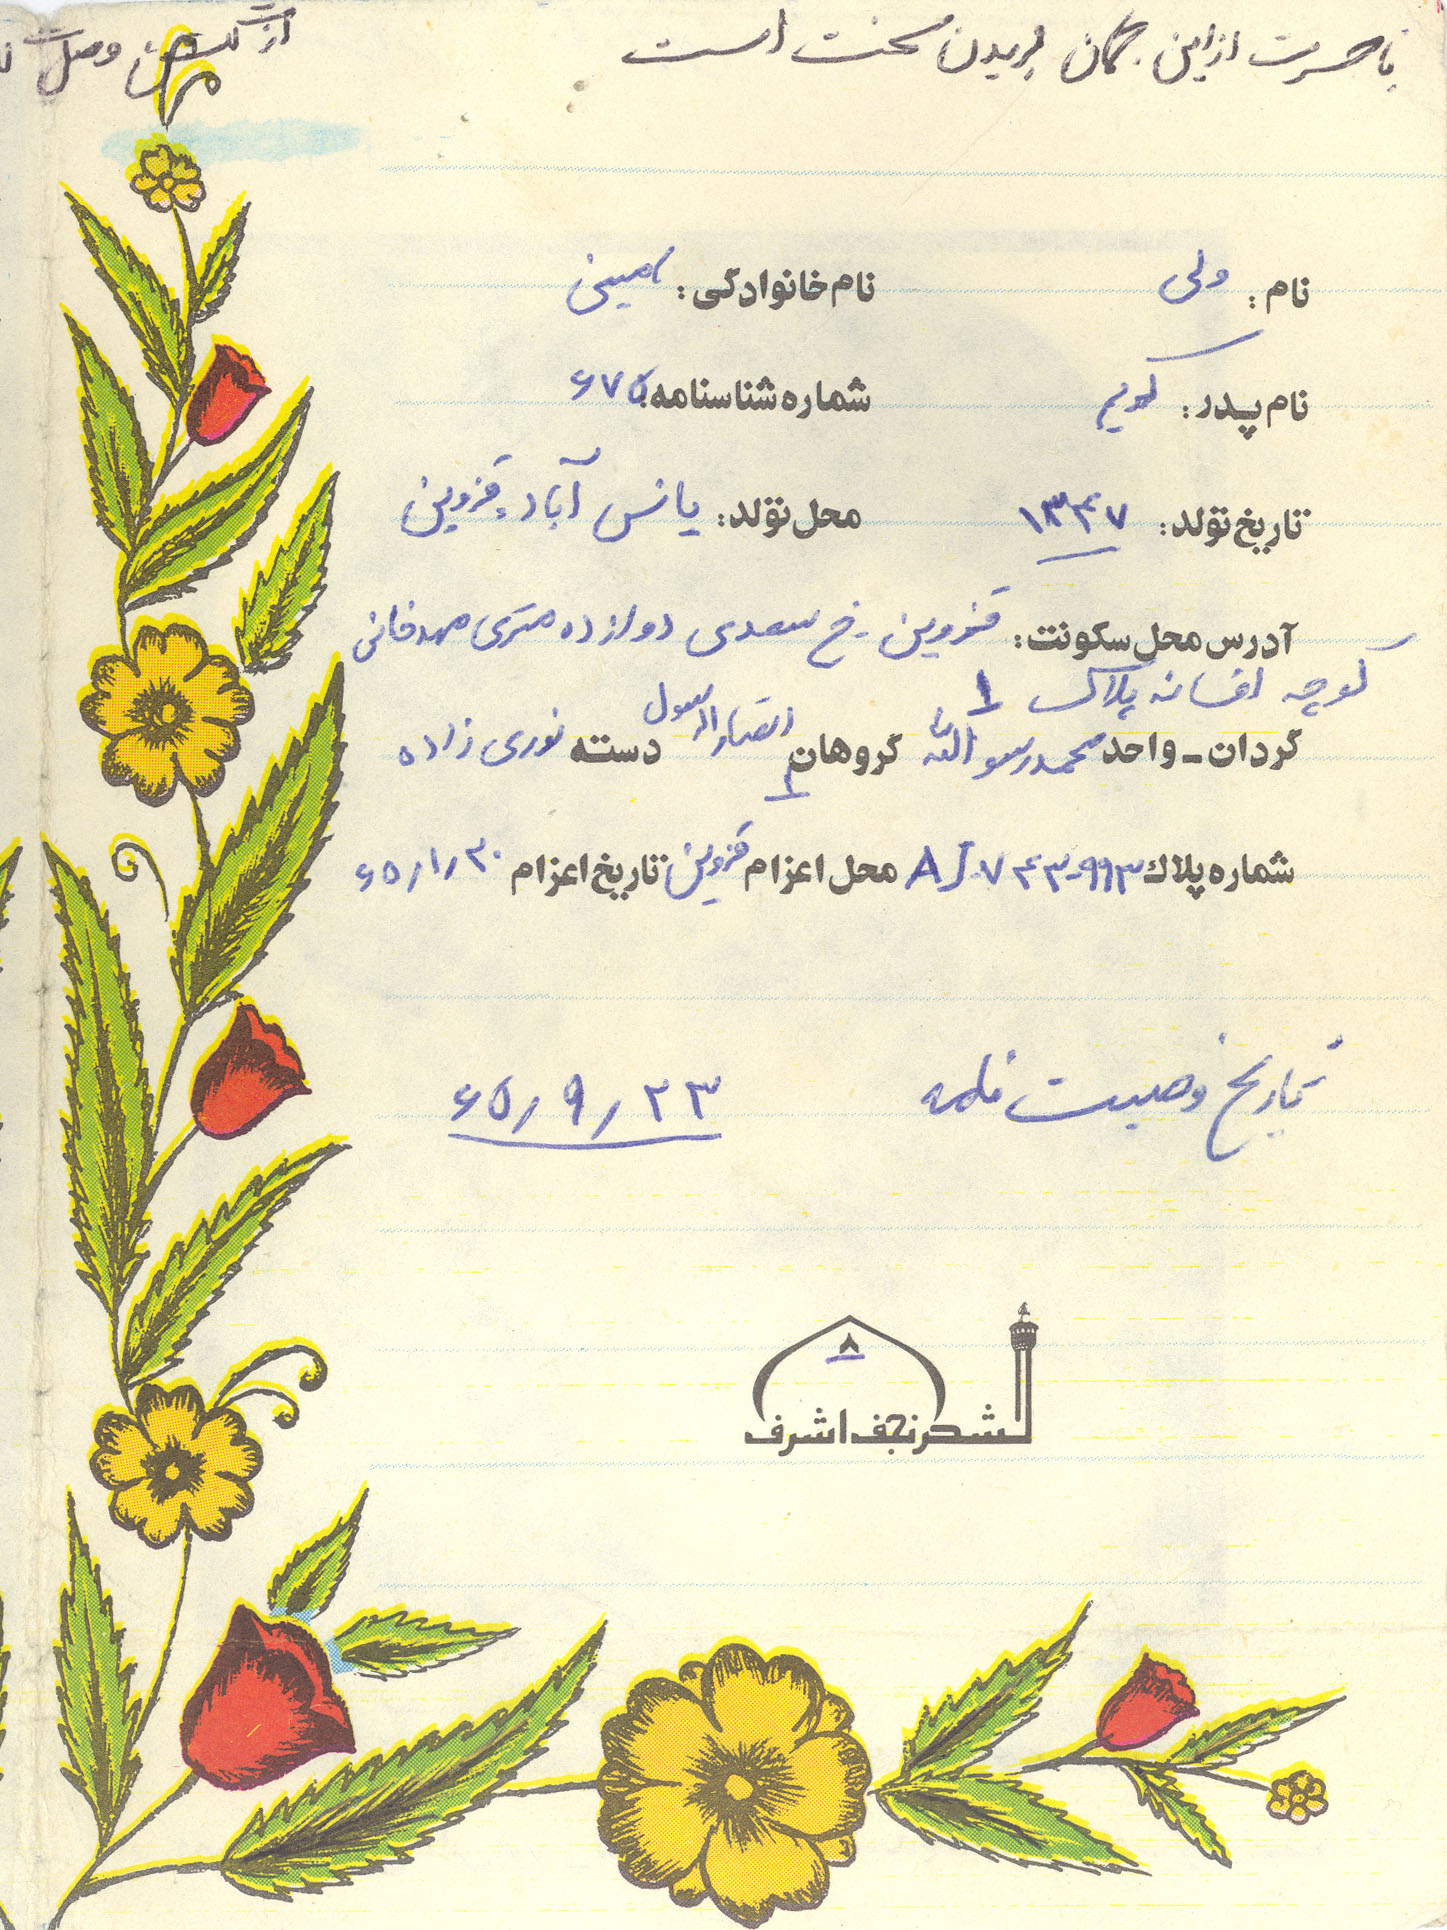 با حسرت ازاین جهان بریدن سخت است
از گلشن وصل
نام : ولی نام خانوادگی : امینی
نام پدر : کریم شماره شناسنامه : ۶۷۵
تاریخ تولد : ۱۳۴۷ محل تولد : یانس آباد قزوین
آدرس محل سکونت : قزوین - خ سعدی دوازده متری مهدخانی
کوچه افسانه پلاک ۱
گردان - واحد محمد رسو الله گروهان انصار الرسول ۲ دسته نوری زاده
شماره پلاك AJ.۷۴۳-۹۹۳ محل اعزام قزوین تاریخ اعزام ۶۵/۱/۳۰
تاریخ وصیت نامه ۶۵/۹/۲۳
۸
لشکر نجف اشرف